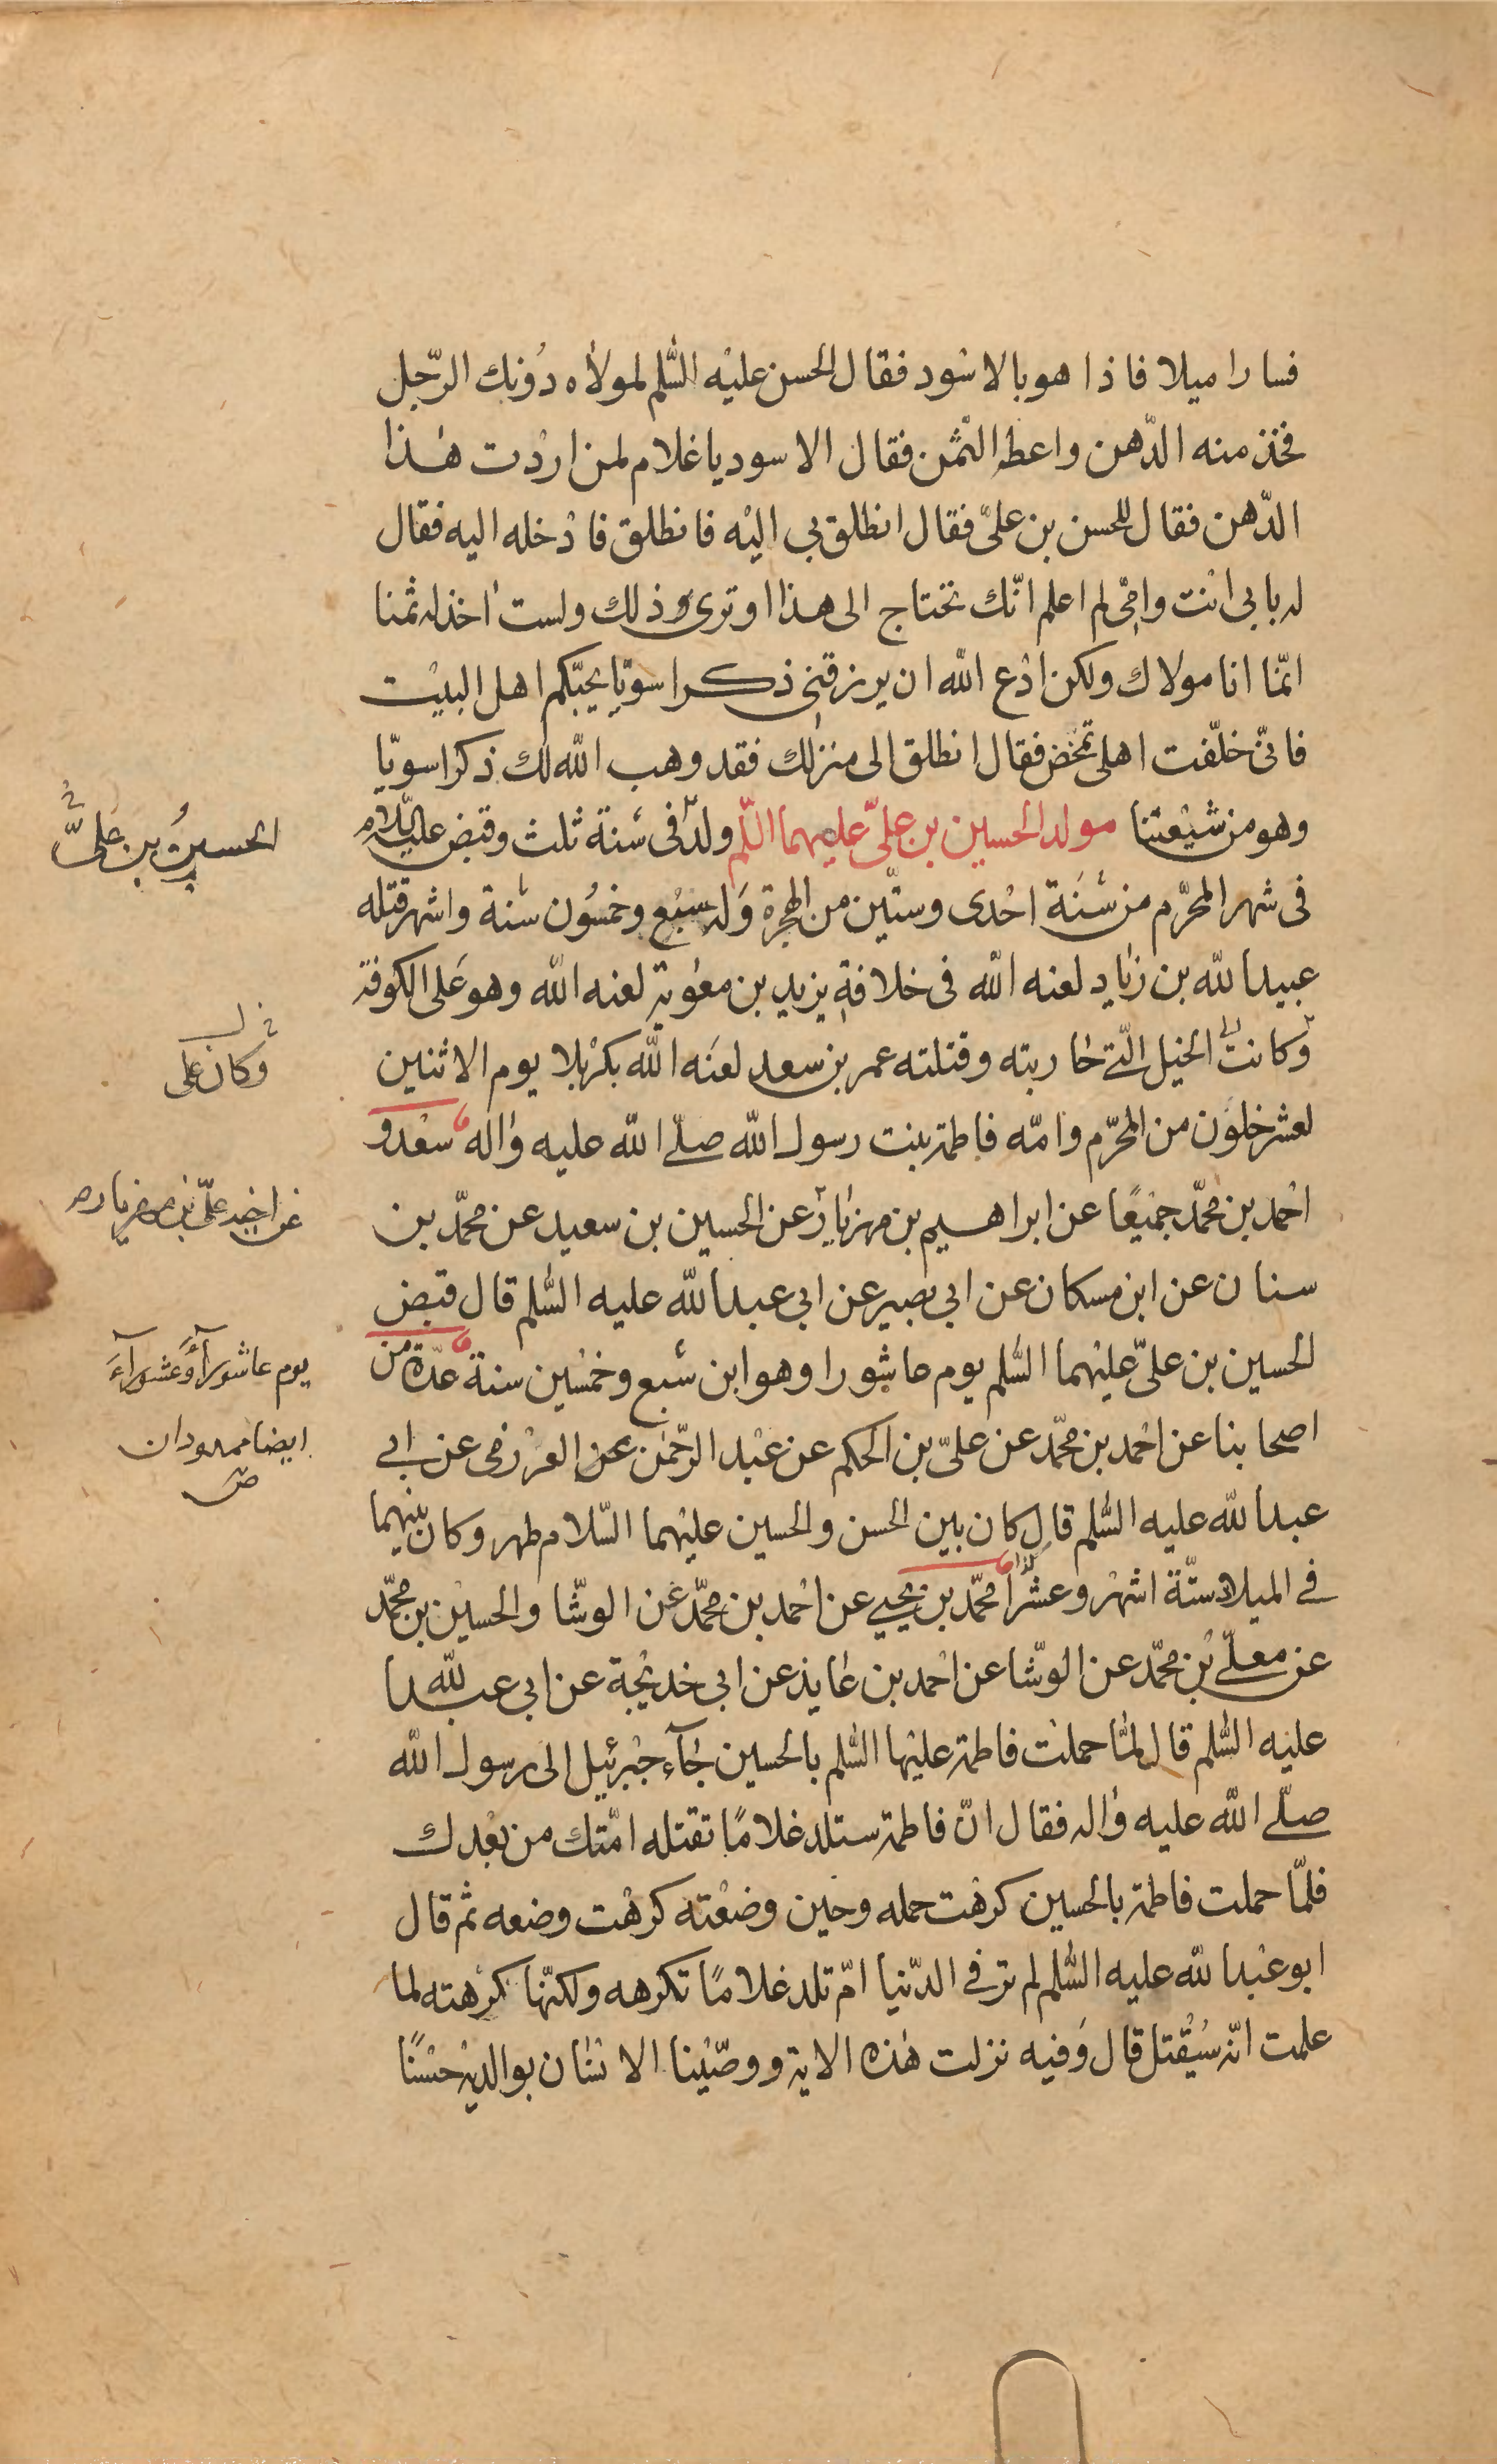 فسارا ميلا فاذا هو بالاسود فقال الحسن عليه السّلم لمولاه دونك الرّجل
فخذ منه الدّهن واعطه الثمن فقال الاسود يا غلام لمن اردت هذا
الدّهن فقال للحسن بن علىّ فقال انطلق بى اليه فانطلق فادخله اليه فقال
له بابى انت وامّى لم اعلم انّك تحتاج الى هذا او ترى ذلك ولست اخذ له ثمنا
انّما انا مولاك ولكن ادع الله ان يرزقنى ذكرا سويّا يحبّكم اهل البيت
فانّى خلّفت اهلى تمخض فقال انطلق الى منزلك فقد وهب الله لك ذكرا سويّا
وهو من شيعتنا مولد الحسين بن علىّ عليهما السّلم ولد فى سنة ثلث وقبض عليه السّلام
الحسين بن علىّ
فى شهر المحرّم من سنة احدى وستّين من الهجرة وله سبع وخمسون سنة واشهر قتله
عبيد الله بن زياد لعنه الله فى خلافة يزيد بن معوية لعنه الله وهو على الكوفة
وكانت الخيل الّتى حاربته وقتلته عمر بن سعد لعنه الله بكربلا يوم الاثنين
وكان على
لعشر خلون من المحرّم وامّه فاطمة بنت رسول الله صلّى الله عليه واله سعد و
احمد بن محمّد جميعًا عن ابراهيم بن مهزيار عن الحسين بن سعيد عن محمّد بن
عن اخيه علىّ بن مهزيار
سنان عن ابن مسكان عن ابى بصير عن ابى عبد الله عليه السّلم قال قبض
الحسين بن علىّ عليهما السّلم يوم عاشورا وهو ابن سبع وخمسين سنة عدّة من
يوم عاشورآء وعشورآء
اصحابنا عن احمد بن محمّد عن علىّ بن الحكم عن عبد الرّحمن العرزمى عن ابى
ايضا ممدودان
ص
عبد الله عليه السّلم قال كان بين الحسن والحسين عليهما السّلام طهر وكان بينهما
فى الميلاد ستّة اشهر وعشرا محمّد بن يحيى عن احمد بن محمّد عن الوشّا والحسين بن محمّد
عن معلّى بن محمّد عن الوشّا عن احمد بن عايذ عن ابى خديجة عن ابى عبد الله
عليه السّلم قال لمّا حملت فاطمة عليها السّلم بالحسين جآء جبرئيل الى رسول الله
صلّى الله عليه واله فقال انّ فاطمة ستلد غلامًا تقتله امّتك من بعدك
فلمّا حملت فاطمة بالحسين كرهت حمله وحين وضعته كرهت وضعه ثم قال
ابو عبد الله عليه السّلم لم تر فى الدّنيا امّ تلد غلامًا تكرهه ولكنّها كرهته لما
علمت انّه سيُقتل قال وفيه نزلت هذه الاية ووصّينا الانسان بوالديه حسنًا